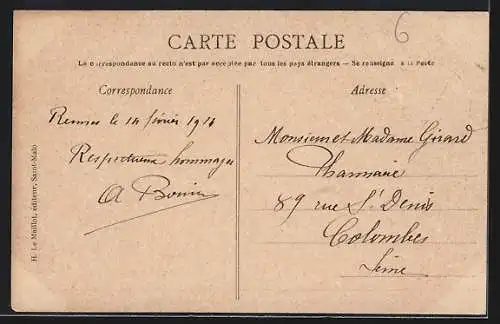 6
CARTE POSTALE
La correspondance au recto n'est pas acceptée par tous les pays étrangers — Se renseigner à la Poste
Correspondance
Adresse
Rennes le 14 février
Respectueux hommages
A
Monsieur et Madame Girard
Pharmacie
89 rue St Denis
Colombes
Seine
H. Le Muillot, éditeur, Saint-Malo